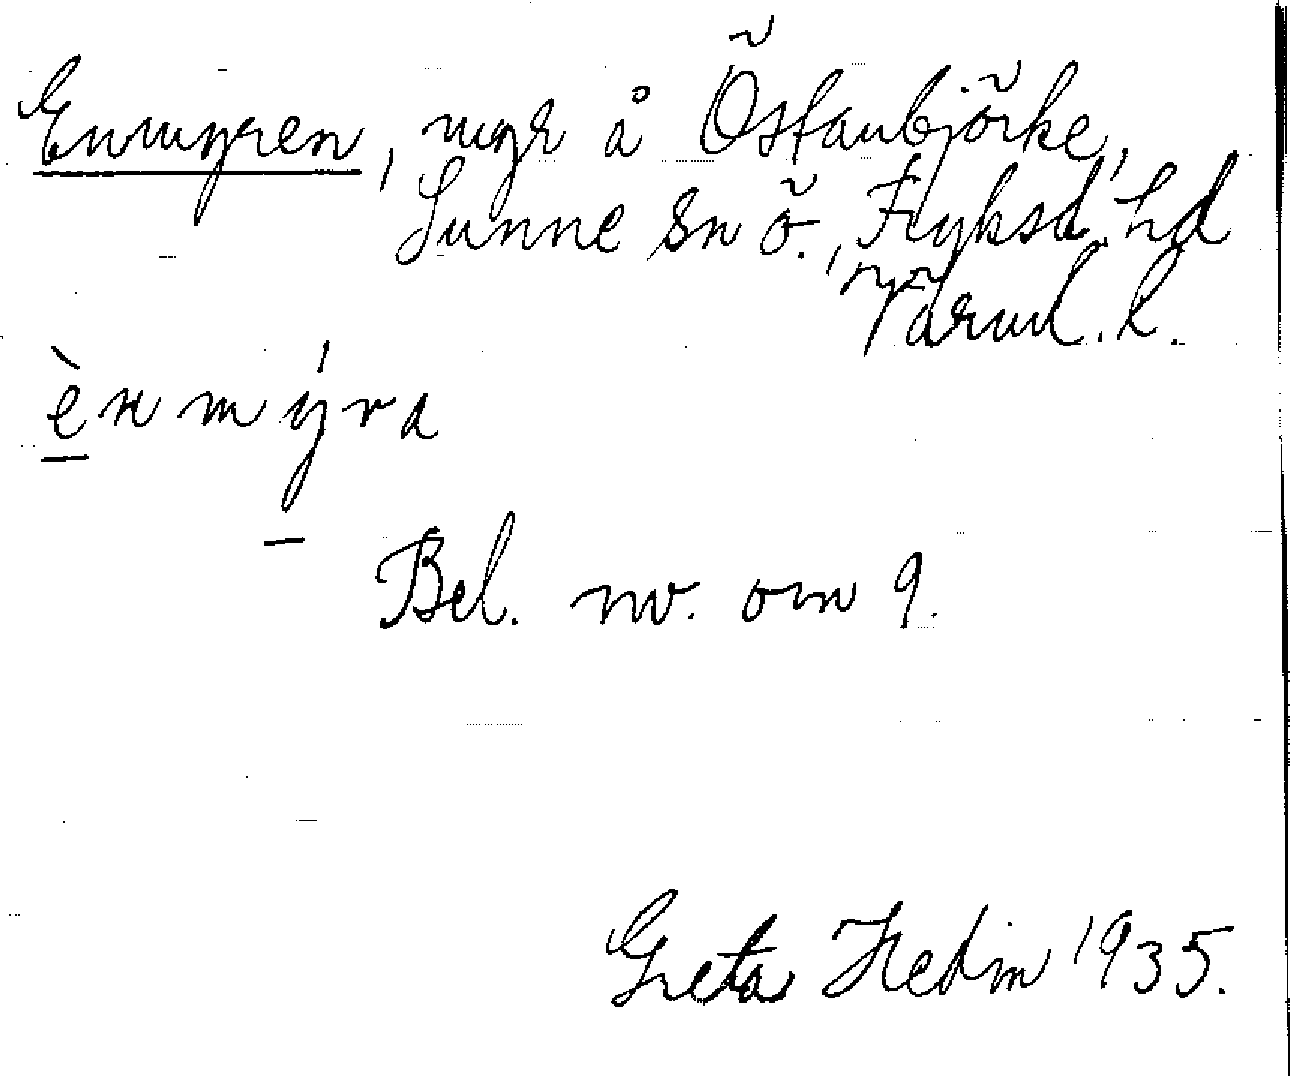 Enmyren, myr å Östanbjörke,
Sunne sn ö., Fryksd. hd
Värml. l.
è̲nmý̲ra
Bel. nv. om 9.
Greta Hedin 1935.